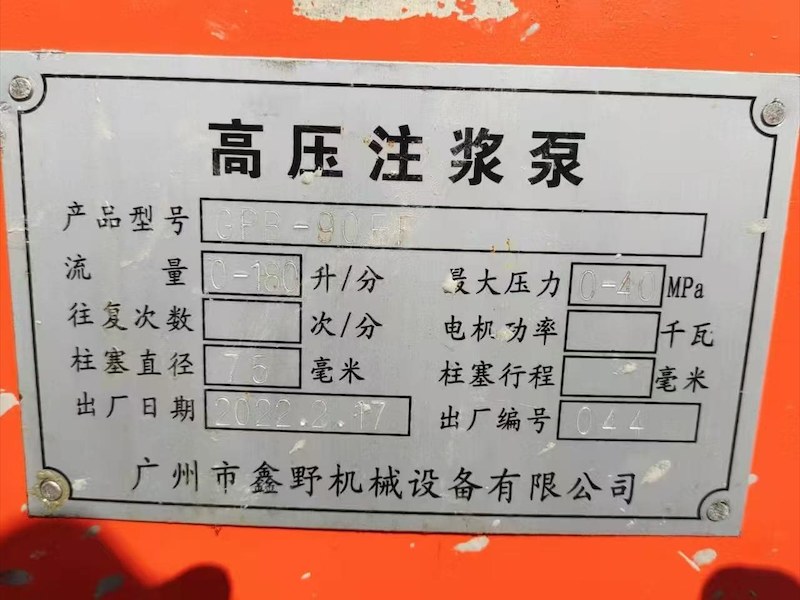 高压注浆泵
产品型号 GPB-90
流量 0-180 升/分 最大压力 0-40 MPa
往复次数 次/分 电机功率 千瓦
柱塞直径 75 毫米 柱塞行程 毫米
出厂日期 2022.2.17 出厂编号 044
广州市鑫野机械设备有限公司